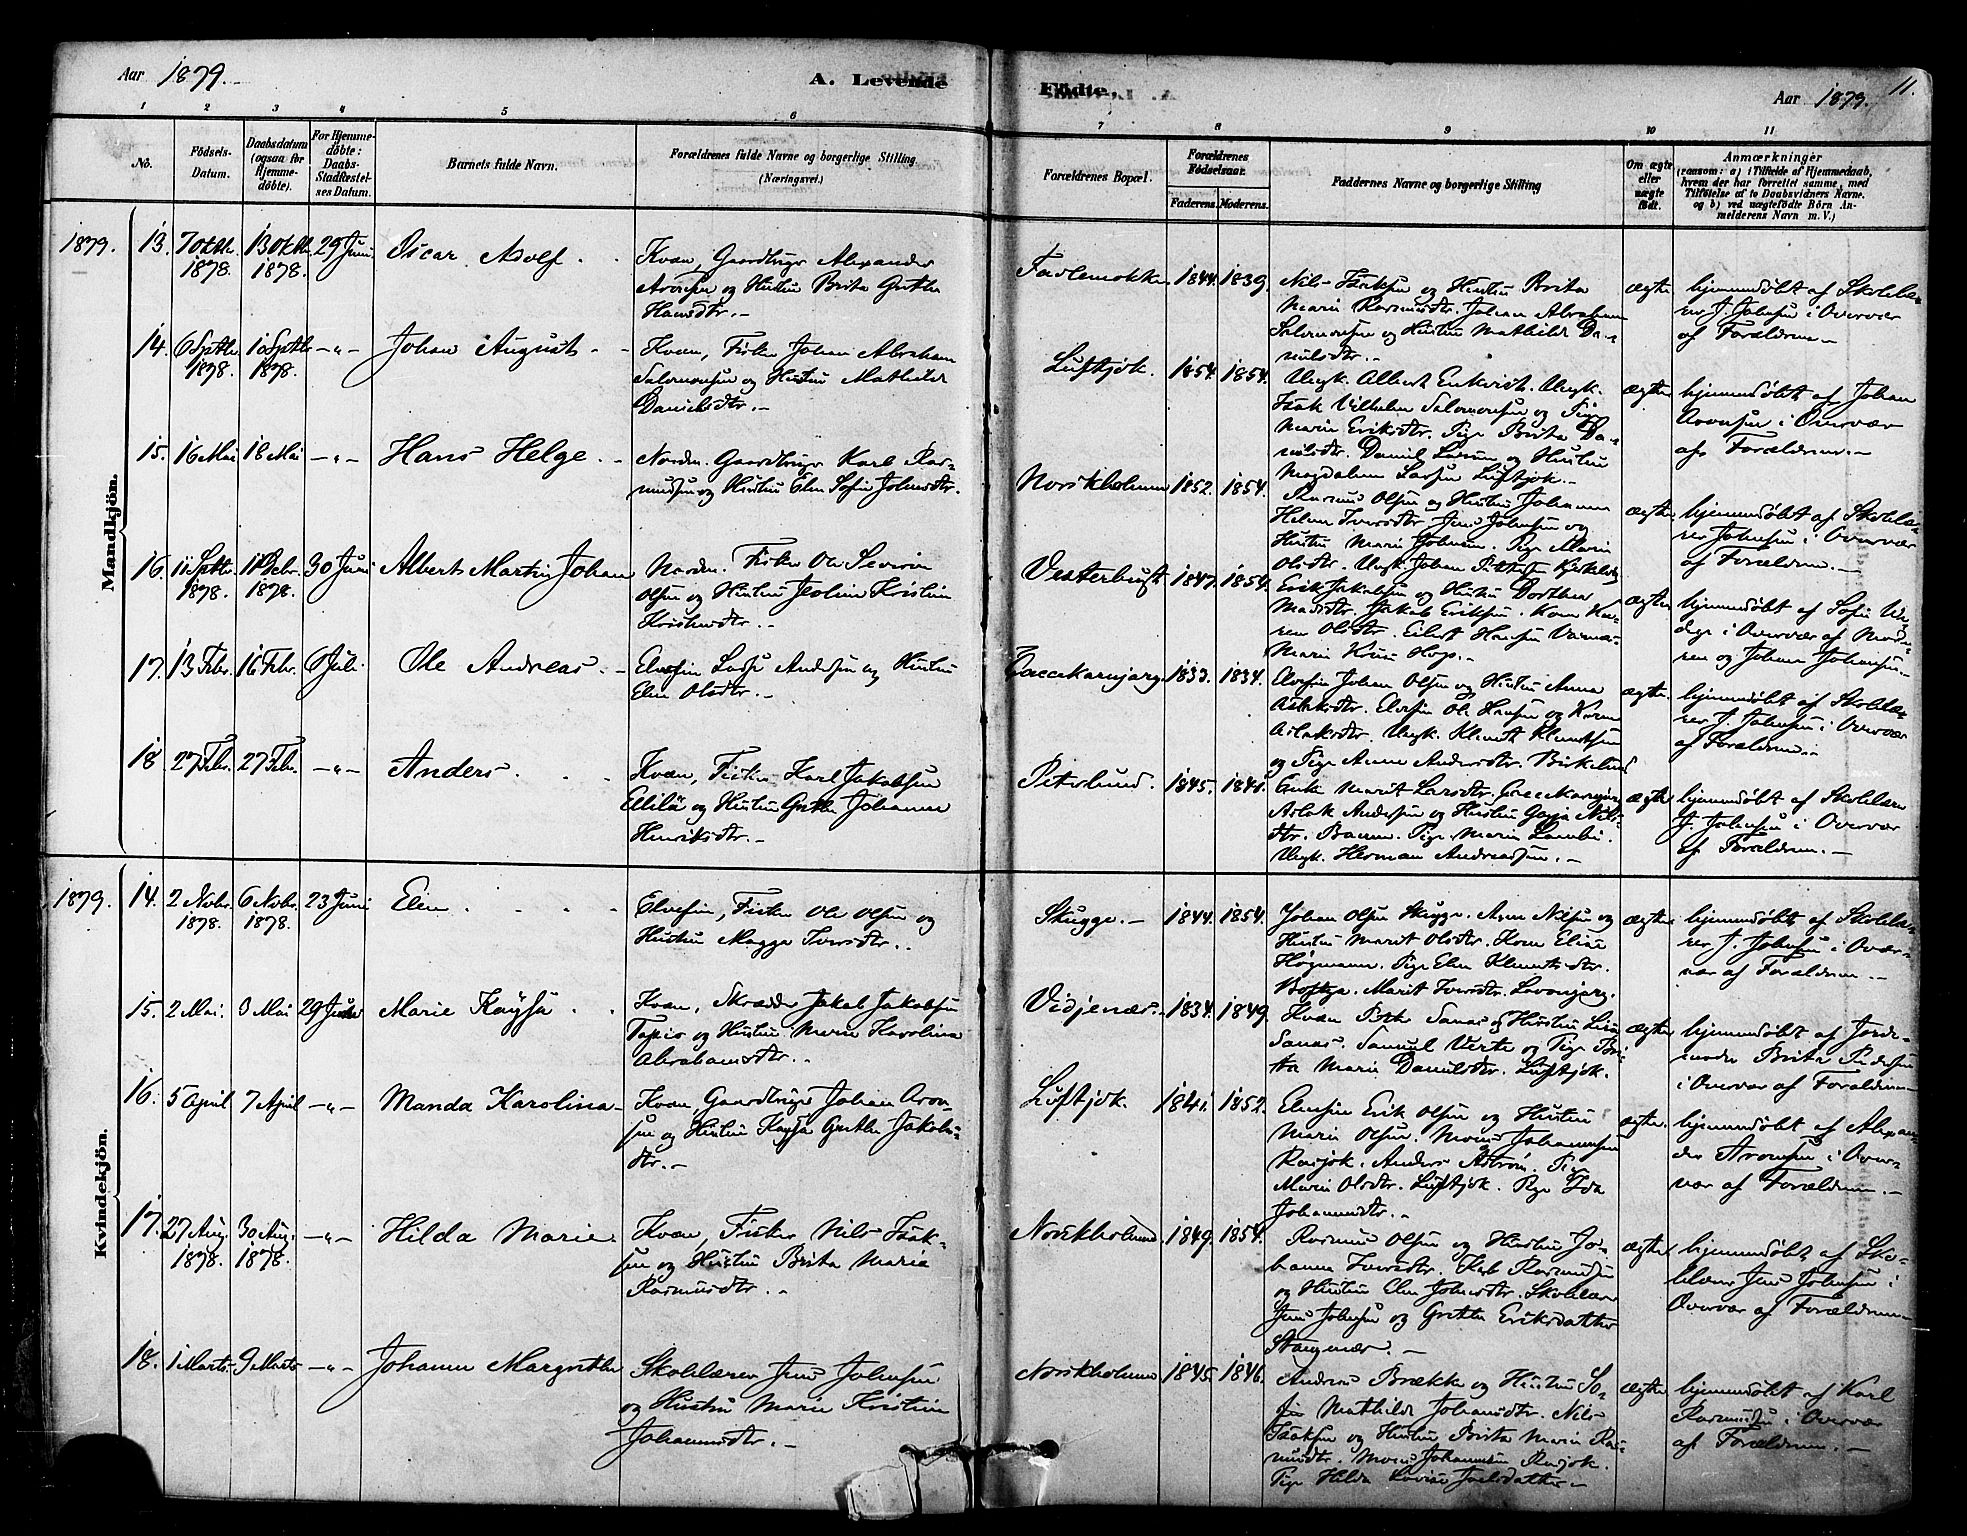 Aar 1879.
A. Levende
Födte.
Aar 1879.
11.
1
2
3
4
5
6
7
8
9
10
11
No.
Födsels-Datum.
Daabsdatum (ogsaa for Hjemmedöbte).
For Hjemmedöbte: Daabs-Stadfæstelses Datum.
Barnets fulde Navn.
Forældrenes fulde Navne og borgerlige Stilling
(Næringsvei.)
Forældrenes Bopæl.
Forældrenes Födselsaar.
Faderens.
Moderens.
Faddernes Navne og borgerlige Stilling
Om ægte eller uægte födt.
Anmærkninger
(saasom: a) i Tilfælde af Hjemmedaab, hvem der har forrettet samme, med Tilföielse af to Daabsvidners Navne, og b) ved uægtefödte Börn Anmelderens Navn m. V.)
Mandkjön.
1879.
13. 7 Oktbr. 1878. 13 Oktbr. 1878. 29 Juni Oscar Adolf
Kvæn, Gaardbruger Alexander
Aronsen og Hustru Brita Grethe
Hansdtr.
1844. 1839.
Nils Isaksen og Hustru Brita
Marie Rasmusdtr. Johan Abraham
Salomonsen og Hustru Mathilde Da-
nielsdtr.
ægte
hjemmedøbt af Skolelæ-
rer J. Johnsen i Overvær
af Forældrene.
14. 6 Septbr. 1878. 10 Septbr. 1878. -"- Johan August
Kvæn, Fisker Johan Abraham
Salomonsen og Hustru Mathilde
Danielsdtr.
Luftjok. 1854. 1854.
Ungk. Albert Enkvist. Ungk.
Isak Vilhelm Salomonsen og Pige
Marie Eriksdtr. Pige Brita Da-
nielsdtr. Daniel Larsen og Hustru
Magdalena Larsen Luftjok.
ægte
hjemmedøbt af Johan
Aronsen i Overvær
af Forældrene.
15. 16 Mai 18 Mai -"- Hans Helge
Nordm. Gaardbruger Karl Ras-
mussen og Hustru Elen Sofie Johnsdtr.
Norskholmen 1852. 1854.
Rasmus Olsen og Hustru Johanna
Helene Iversdtr. Jens Johnsen og
Hustru Marie Johnsen. Pige Maria
Olsdtr. Ungk. Johan
ægte
hjemmedøbt af Skolelæ-
rer Johnsen i Overvær
af Forældrene.
16. 11 Septbr. 1878. 30 Juni Albert Martin Johan
Nordm. Fisker Ole Severin
Olsen og Hustru Kristine
Vesterbugt 1847. 1854.
Erik Jakobsen og Hustru Dorthea
Madsdtr. Jakob Eriksen. Kone Ka-
ren Olsdtr. Eilert Hansen
ægte
hjemmedøbt af Sofie
i Overvær af Mode-
ren og Johan Johansen.
17. 13 Febr. 16 Febr. Juli. Ole Andreas
Elvefin Lars Andersen og Hustru
Elen Olsdtr.
1833. 1834.
Elvefin Johan Olsen og Hustru Anna
Aslaksdtr. Elvefin Ole Hansen og Karen
Aslaksdtr. Ungk. Klemet Klemetsen
og Pige Anna Andersdtr. Birkelund
ægte.
hjemmedøbt af Skolelæ-
rer J. Johnsen i Overvær
af Forældrene.
18 27 Febr. 27 Febr. -"- Anders
Kvæn, Fisker Karl Jakobsen
og Hustru Grethe Johanne
Henriksdtr.
Peterlund. 1845. 1841.
Enke Marit Larsdtr.
Aslak Andersen og Hustru
Pige Maria
Ungk. Herman Andreassen.
ægte
hjemmedøbt af Skolelærer
J. Johnsen i Overvær
af Forældrene.
Kvindekjön.
1879.
14. 2 Novbr. 1878. 6 Novbr. 1878. 23 Juni Elen
Elvefin, Fisker Ole Olsen og
Hustru Magga Iversdtr.
Skugge. 1844. 1854.
Johan Olsen Skugge. Nilsen og
Hustru Marit Olsdtr. Kone Elise
Høgmann. Pige Elen Klemetsdtr.
Marit Iversdtr.
ægte
hjemmedøbt af Skolelæ-
rer J. Johnsen i Overvær
vær af Forældrene.
15. 2 Mai. Mai 29 Juni Marie Kaysa
Kvæn, Skrædder Jakob Jakobsen
og Hustru Maria Karolina
Abrahamsdtr.
Vidjenæs. 1834. 1849.
Kvæn og Hustru
Samuel og Pige Bri-
ta Marie Danielsdtr. Luftjok.
ægte
hjemmedøbt af Jorde-
moder Brita Pedersen
i Overvær af Forældrene
16. 5 April 7 April -"- Manda Karolina
Kvæn, Gaardbruger Johan Aron-
sen og Hustru Kaysa Grethe Jakobs-
dtr.
Luftjok. 1841. 1852.
Elvefin Erik Olsen og Hustru
Marie Olsen. Mons Johannesen
Anders
Marie Olsdtr. Luftjok. Pige Ida
Johannesdtr.
ægte.
hjemmedøbt af Alexan-
der Aronsen i Over-
vær af Forældrene.
17. 27 Aug. 1878. 30 Aug. 1878. -"- Hilda Marie
Kvæn, Fisker Nils Isak-
sen og Hustru Brita Marie
Rasmusdtr.
Norskholmen 1849. 1854.
Rasmus Olsen og Hustru Jo-
hanna Iversdtr. Karl Rasmussen
og Hustru Elen Johnsdtr. Skolelærer
Jens Johnsen og Grethe Eriksdatter
Stangenær.
ægte
hjemmedøbt af Sko-
lelærer Jens Johnsen i
Overvær af Forældrene
18. 1 Marts 9 Marts -"- Johanne Margrethe
Skolelærer Jens Johnsen
og Hustru Marie Kristine
Johannesdtr.
Norskholmen 1845. 1846.
Andreas Brække og Hustru So-
fie Mathilde Johansdtr. Nils
Isaksen og Hustru Brita Marie Ras-
musdtr. Mons Johannesen
Pige Hilda Lovise Joelsdatter
ægte
hjemmedøbt af Karl
Rasmussen i Overvær
af Forældrene.